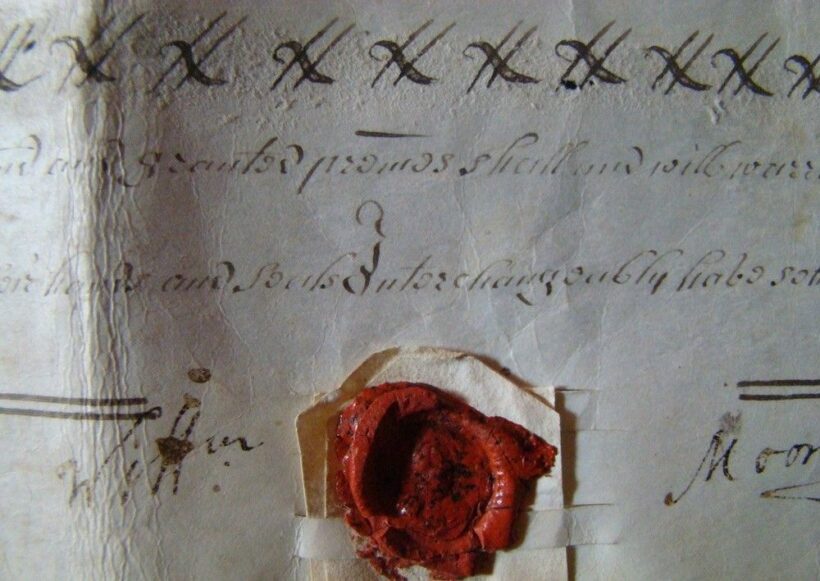 and granted premes shall and will warr
hands and Seals Interchangeably have set
Will̅m Moor